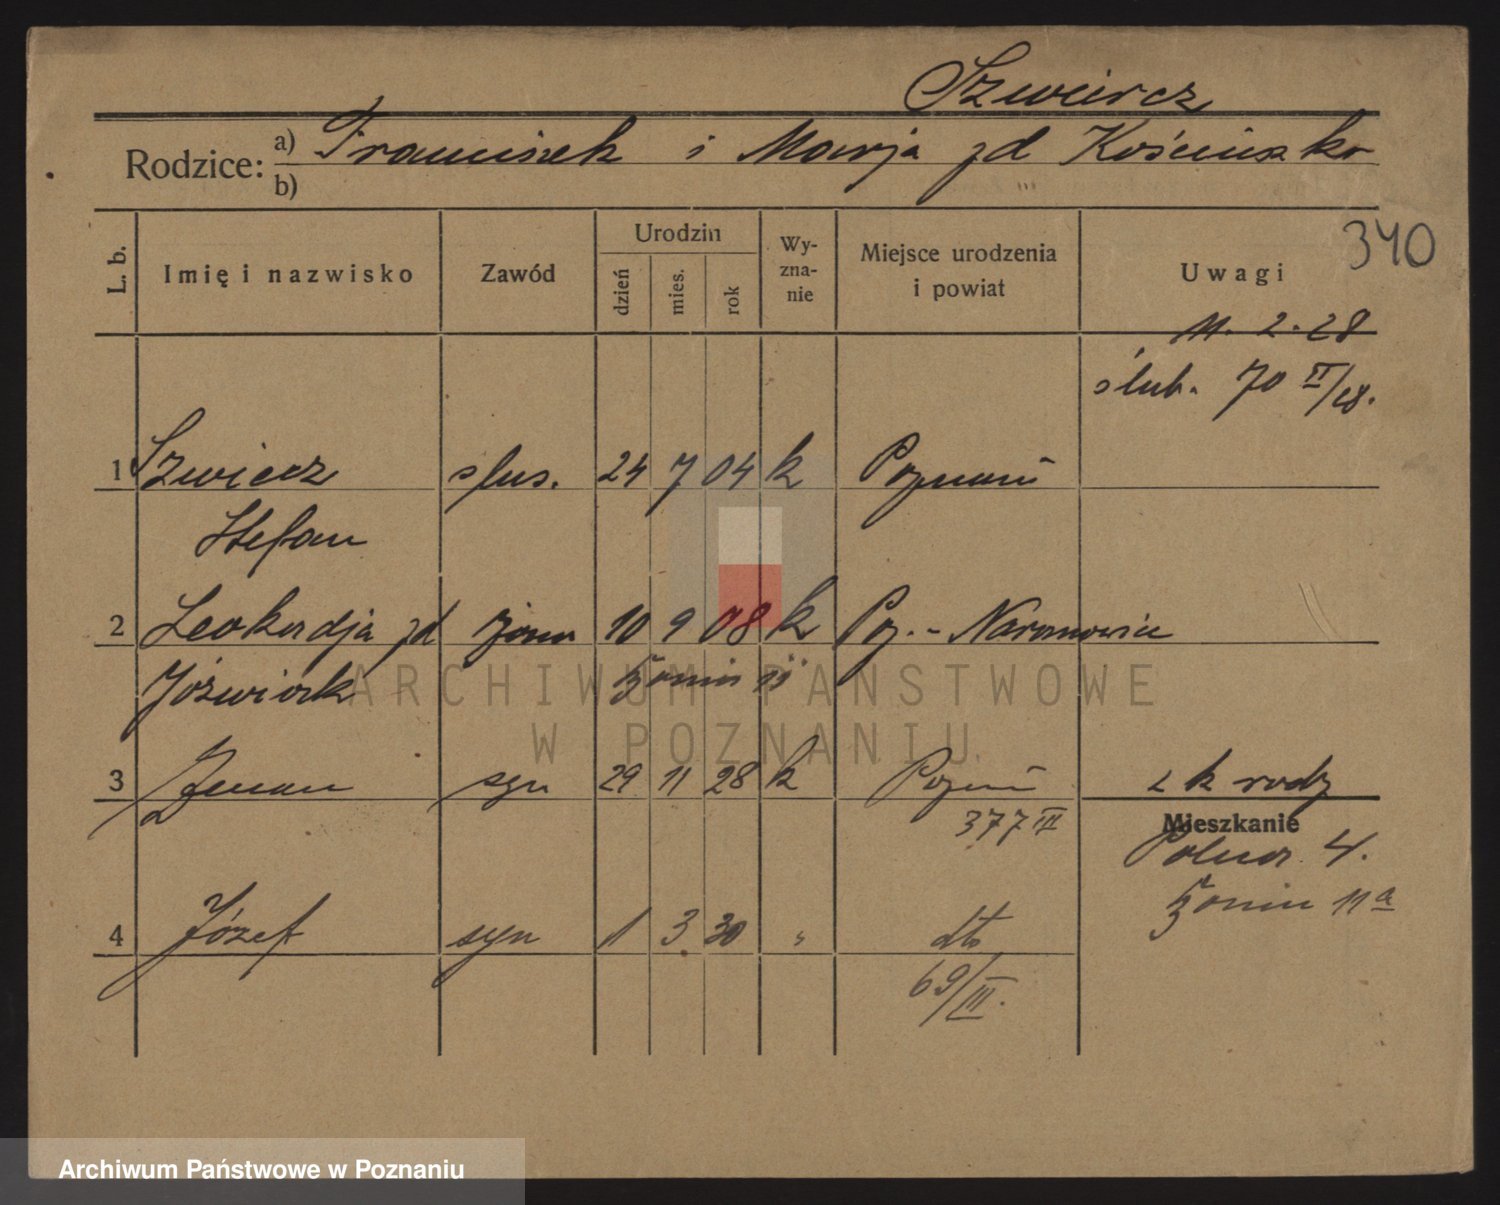 Szwiercz
Rodzice: a) Franciszek i Marja zd Kościuszko
b)
L. b. Imię i nazwisko Zawód Urodzin dzień mies. rok Wyznanie Miejsce urodzenia i powiat Uwagi 340
11. 2. 28
ślub. 70 II/28.
1 Szwiercz ślus. 24 7 04 k Poznań
Stefan
2 Leokadja zd żona 10 9 08 k Poz. - Naramowice
Jóźwiak
ARCHIWUM PAŃSTWOWE
W POZNANIU
3 Zenon syn 29 11 28 k Poznań z k rodz
377 III
Mieszkanie
Polna 4.
11a
4 Józef syn 1 3 30 " dto
69/III.
Archiwum Państwowe w Poznaniu